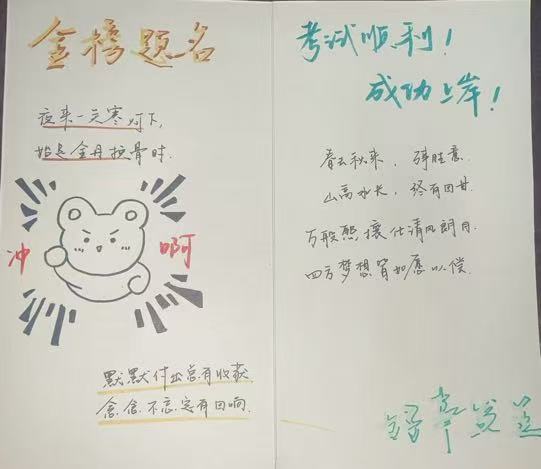 金榜题名
夜来一点寒灯下,
始是金丹换骨时.
冲 啊
默默付出总有收获
念念不忘定有回响.
考试顺利!
成功上岸!
春去秋来, 胜意.
山高水长, 终有回甘.
万般熙攘化清风朗月.
四方梦想皆如愿以偿.